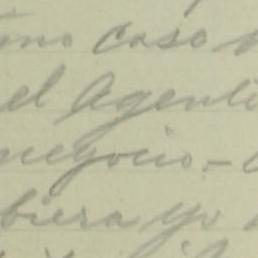 caso
el Agente
negocio.-
biera yo